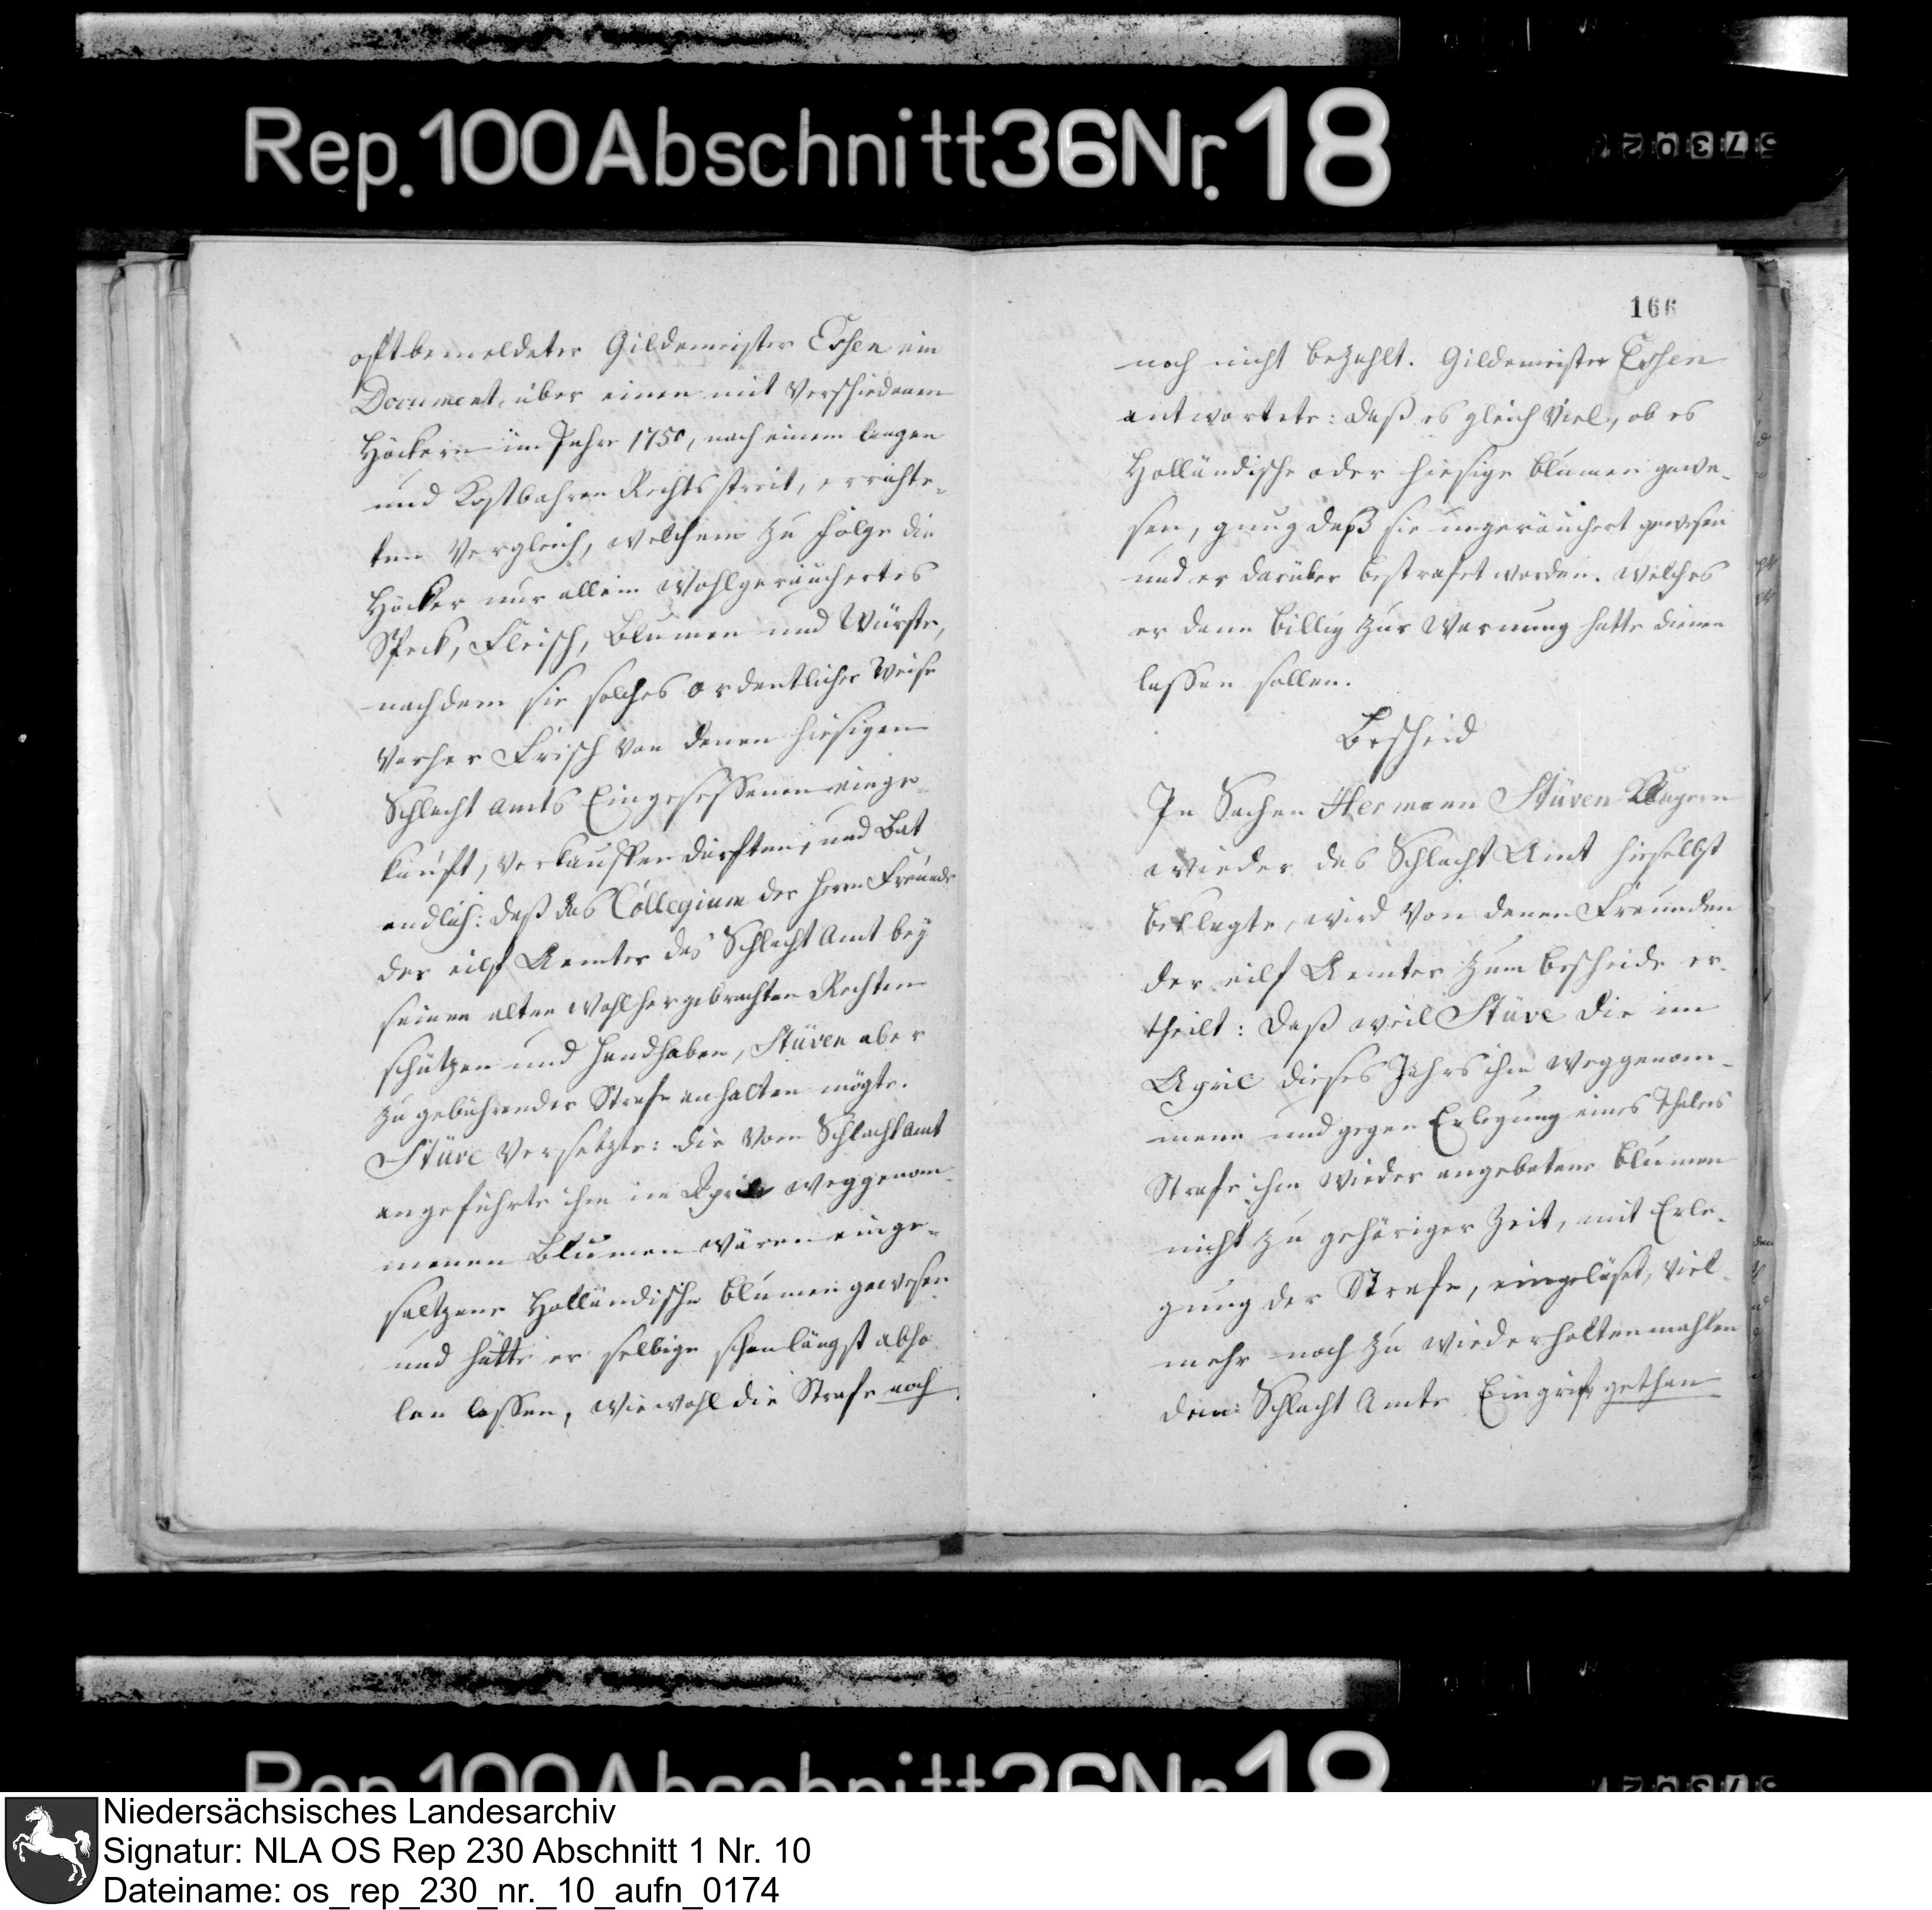 Rep. 100 Abschnitt 36 Nr. 18
oftbemeldeter Gildemeister Essen ein
Document, über einen mit verschiedenen
Höckern im Jahre 1750, nach einem langen
und Kostbahren Rechtsstreit, errichte-
ten Vergleich, welchem zu folge die
Höcker nur allein wohlgeräuchertes
Speck, Fleisch, Blumen und Würste,
nachdem sie solches ordentlicher Weise
vorher Frisch von denen hiesigen
Schlacht Amts Eingesessenen einge-
kauft, verkauffen dürften, und Bat
endlich: daß das Collegium der Herrn Freunde
der eilf Aemter das Schlacht Amt bey
seinen alten wohlhergebrachten Rechten
schützen und handhaben, Stüven aber
zu gebührender Strafe anhalten mögte.
Stüve versetzte: die vom Schlacht Amt
angeführte ihm im April weggenom-
menen Blumen wären einge-
saltzene Holländische Blumen gewesen
und hätte er selbige schon längst abho-
len lassen, wiewohl die Strafe noch
166
noch nicht bezahlt. Gildemeister Essen
antwortete: daß es gleich viel, ob es
Holländische oder hiesige Blumen gewe-
sen, gnug daß sie ungeräuchert gewesen
und er darüber bestrafet worden. welches
er denn billig zur Warnung hatte dienen
lassen sollen.
Bescheid
In Sachen Hermann Stüven Klägern
wieder das Schlacht Amt hieselbst
Beklagte, wird von denen Freunden
der eilf Aemter zum bescheide er-
theilt: Daß weil Stüve die im
April dieses Jahrs ihm weggenom-
mene und gegen Erlegung eines Thalers
Strafe ihm wieder angebotene Blumen
nicht zu gehöriger Zeit, mit Erle-
gung der Strafe, eingelöset, viel-
mehr noch zu wiederholtenmahlen
dem Schlacht Amte Eingrif gethan
Niedersächsisches Landesarchiv
Signatur: NLA OS Rep 230 Abschnitt 1 Nr. 10
Dateiname: os_rep_230_nr._10_aufn_0174